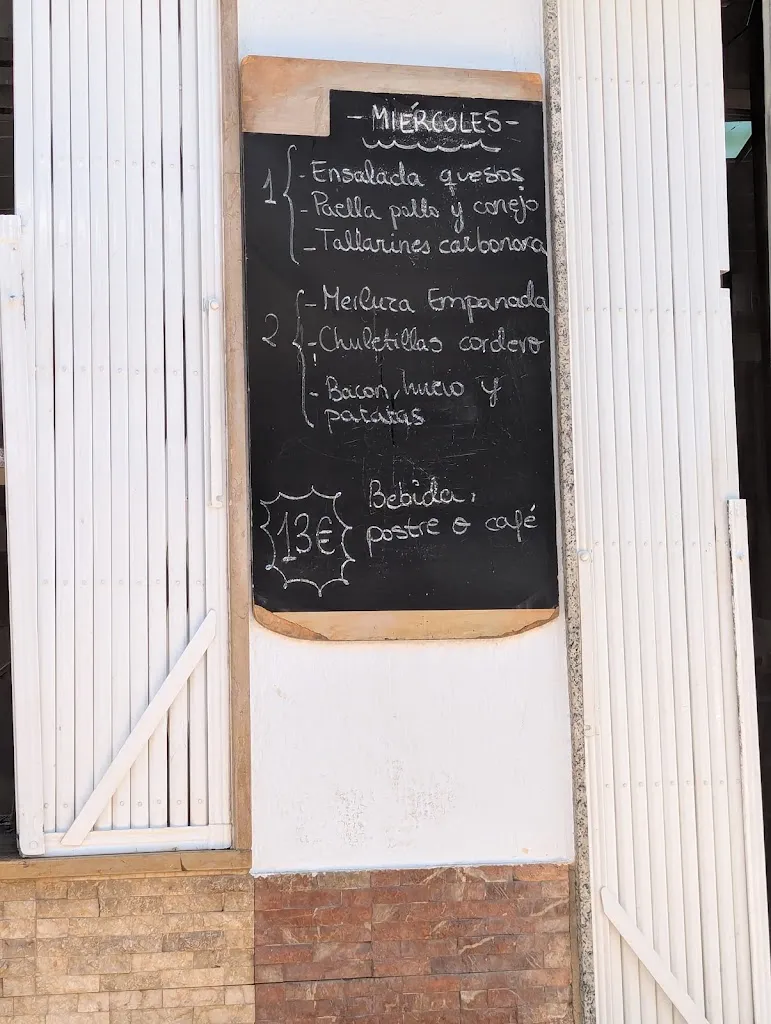 - MIÉRCOLES -
1 - Ensalada quesos
- Paella pollo y conejo
- Tallarines carbonara
2 - Merluza Empanada
- Chuletillas cordero
- Bacon, huevo y
patatas
13€ Bebida,
postre o café